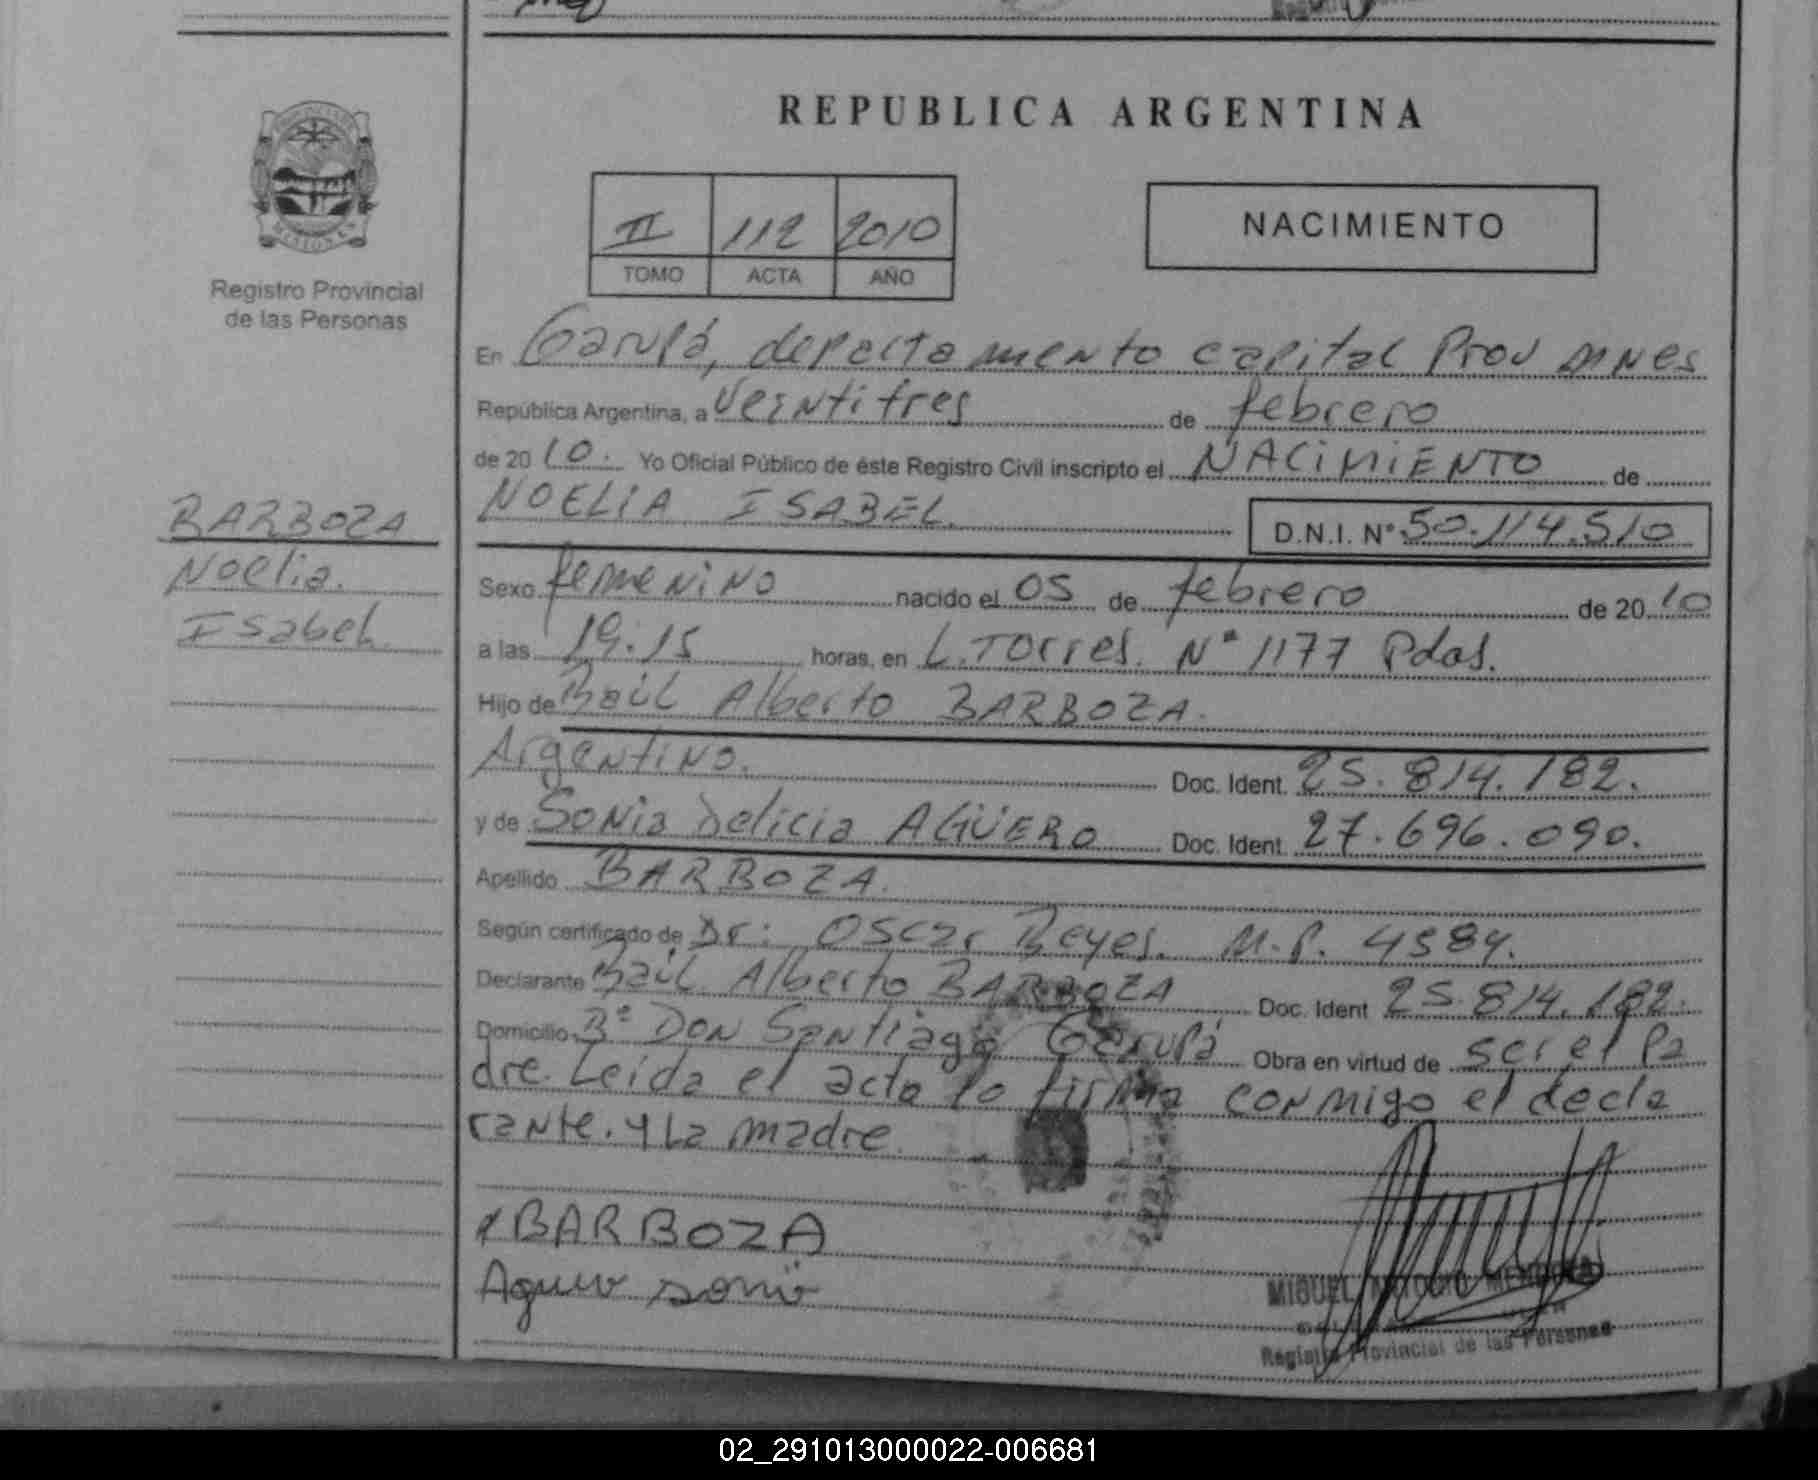 REPUBLICA ARGENTINA
II 112 2010
TOMO ACTA AÑO
NACIMIENTO
Registro Provincial
de las Personas
BARBOZA
Noelia.
Isabel.
En Garupá, departamento capital Prov MNES
República Argentina, a Veintitres de febrero
de 20 10. Yo Oficial Público de éste Registro Civil inscripto el NACIMIENTO de
NOELIA ISABEL. D.N.I. Nº 50.114.510
Sexo femenino nacido el 05 de febrero de 20 10
a las 19.15 horas, en L. Torres. Nº 1177 Pdas.
Hijo de Raúl Alberto BARBOZA.
Argentino. Doc. Ident. 25.814.182.
y de Sonia Delicia AGÜERO Doc. Ident. 27.696.090.
Apellido BARBOZA.
Según certificado de Dr: Oscar Reyes. M.P. 4584.
Declarante Raúl Alberto BARBOZA Doc. Ident 25.814.182.
Domicilio Bº Don Santiago Garupá Obra en virtud de ser el Pa
dre. Leída el acta lo firma conmigo el decla
rante. y La madre.
BARBOZA
Aguero Sonia
MIGUEL ANTONIO MENDOZA
Registro Provincial de las Personas
02_291013000022-006681